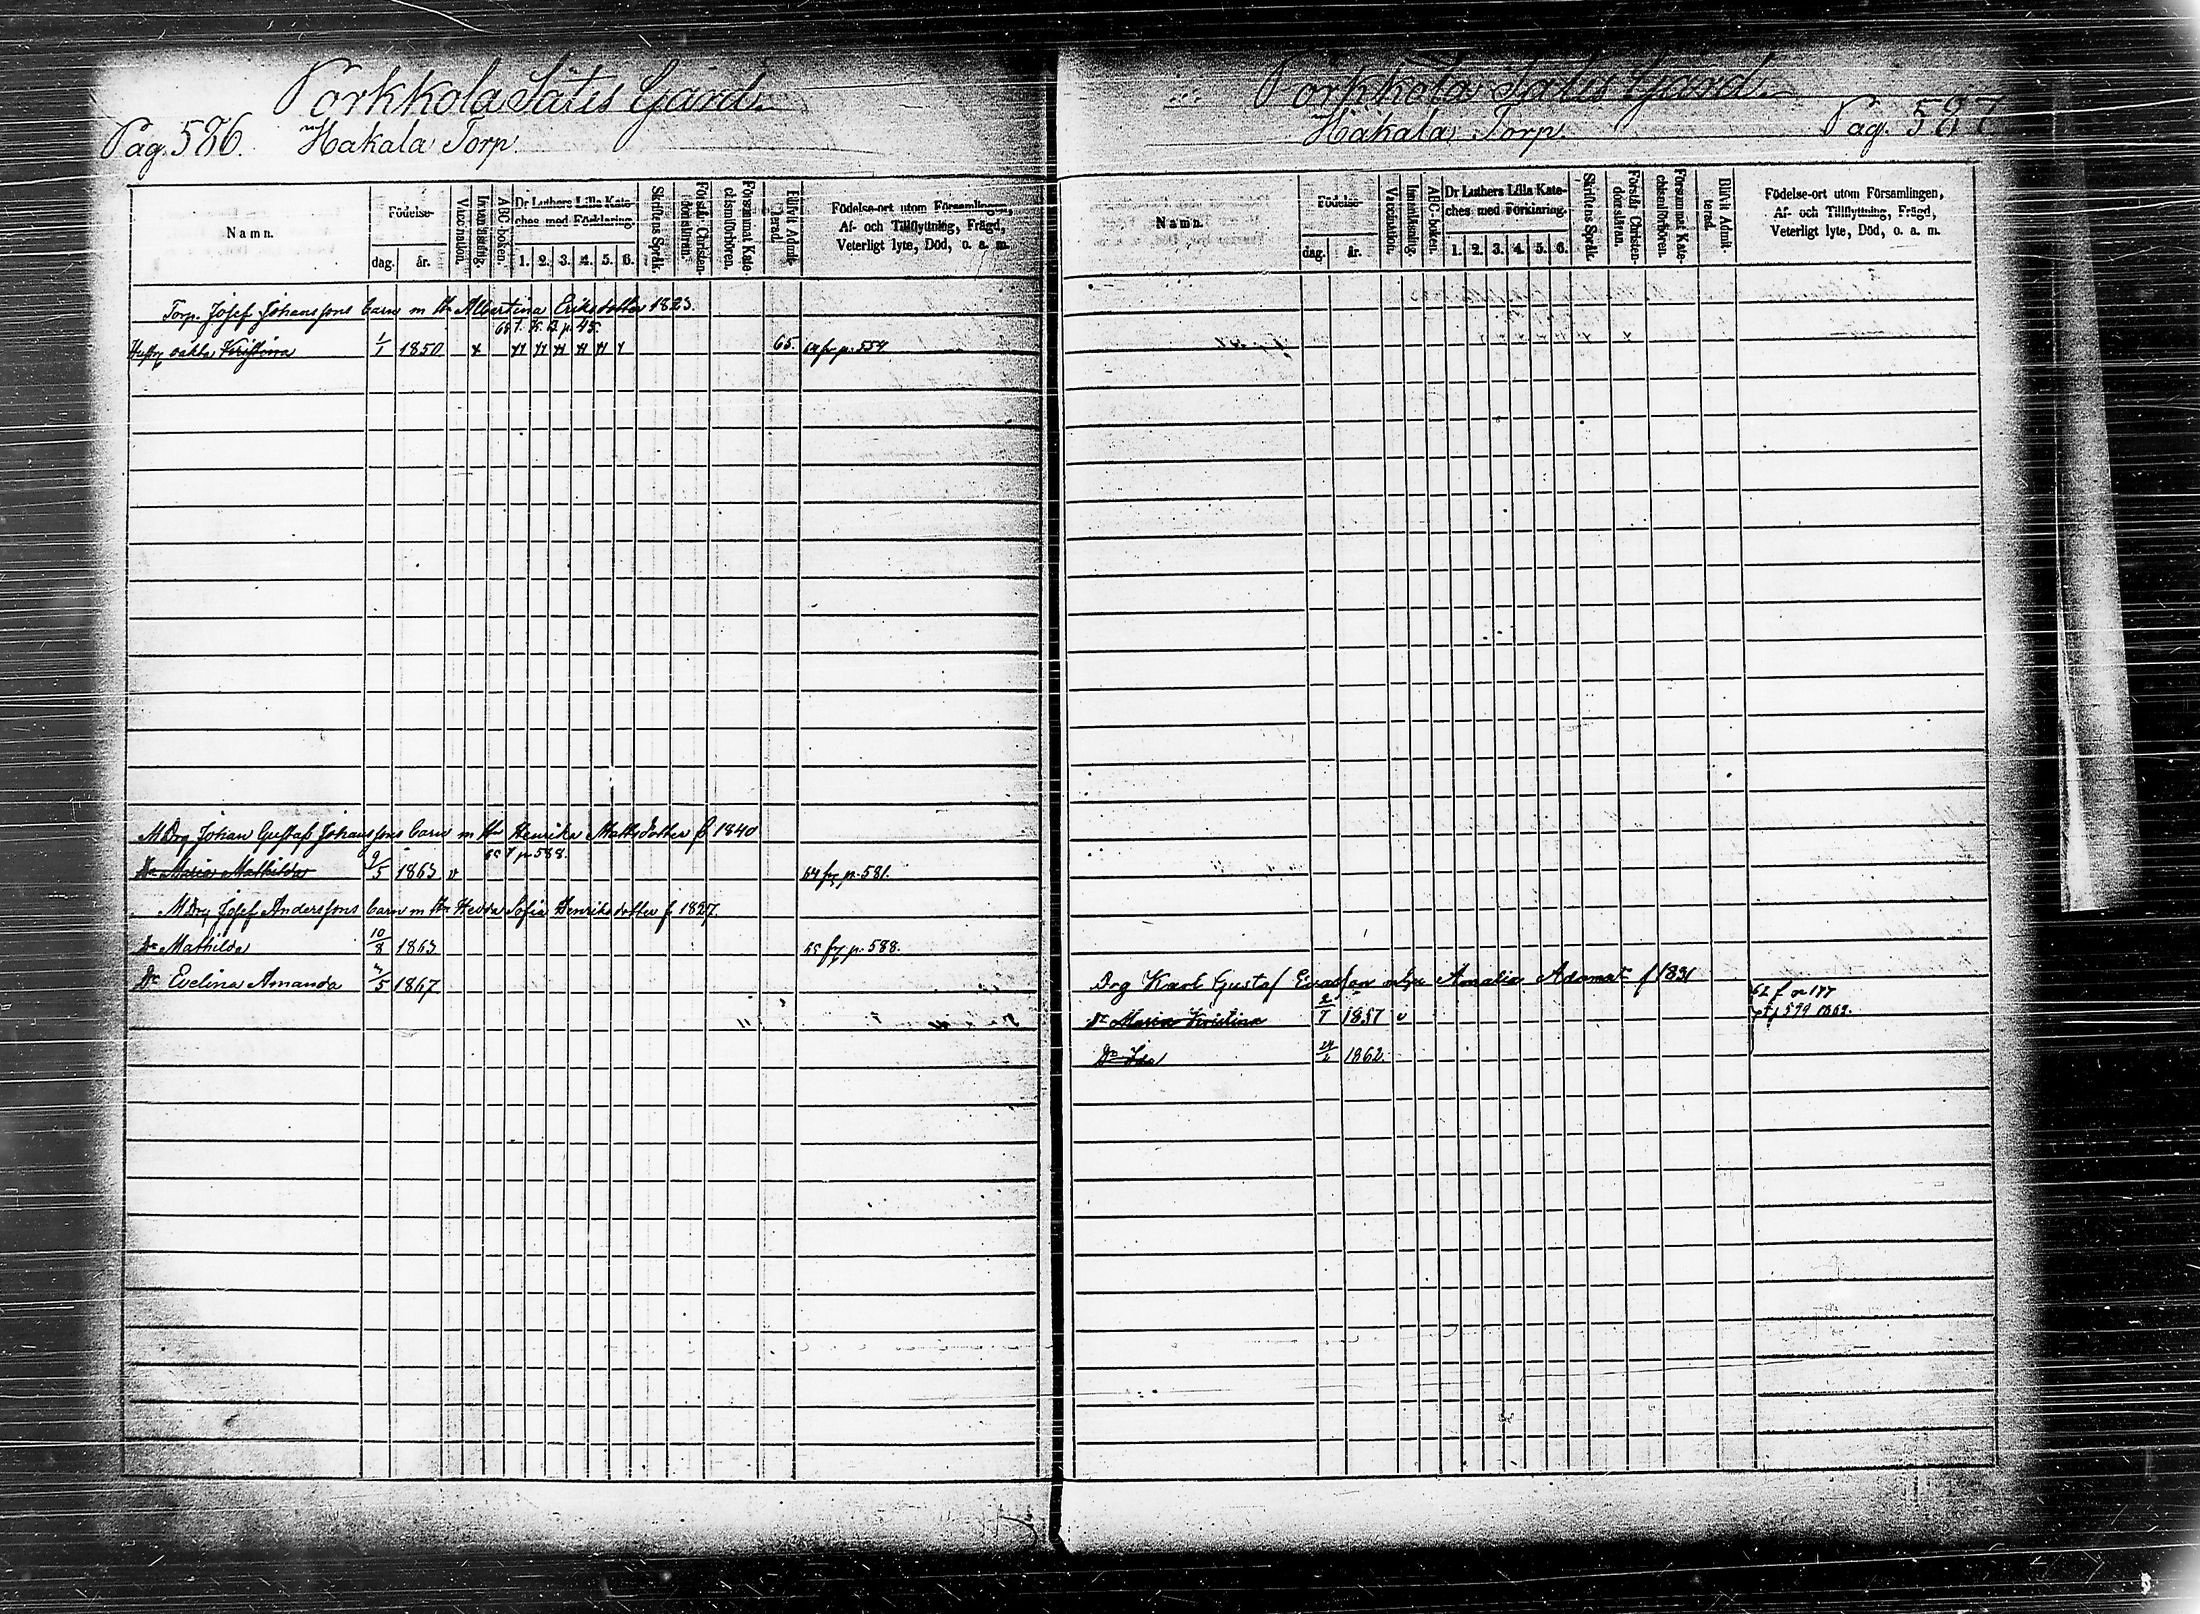 Porkkola Sätes Gård.
Pag. 586. Hakala Torp
Namn.
Födelse-
dag. år.
Vaccination.
Innanläsning.
ABC-boken.
Dr Luthers Lilla Kate-
ches med Förklaring.
1. 2. 3. 4. 5. 6.
Skriftens Språk.
Förstår Christen-
domsläran.
Försummat Kate-
chismiförhören.
Blifvit Admit-
terad.
Födelse-ort utom Församlingen,
Af- och Tillflyttning, Frägd,
Veterligt lyte, Död, o. a. m.
Torp. Josef Johanssons barn m Hu Albertina Eriksdotter 1823.
p. 45.
oäkta Kristina 1/1 1850 65. 64 fr p. 554.
MDrg Johan Gustaf Johanssons barn m Hu Henrika Mattsdotter f. 1840
65 t p 588.
Dr Maria Mathilda 9/5 1863 v 64 fr p. 581.
MDrg Josef Anderssons barn m Hu Hedda Sofia Henriksdotter f 1827.
Dr Mathilda 10/8 1863 65 fr p. 588.
Dr Evelina Amanda /5 1867
Porkkola Sätes Gård.
Hakala Torp Pag. 587
Namn.
Födelse-
dag. år.
Vaccination.
Innanläsning.
ABC-boken.
Dr Luthers Lilla Kate-
ches med Förklaring.
1. 2. 3. 4. 5. 6.
Skriftens Språk.
Förstår Christen-
domsläran.
Försummat Kate-
chismiförhören.
Blifvit Admit-
terad.
Födelse-ort utom Församlingen,
Af- och Tillflyttning, Frägd,
Veterligt lyte, Död, o. a. m.
Drg Karl Gustaf Amalia Adamsdr f 1831
62 f 177
Dr Maria Kristina 2/7 1857 v 599
Dr Ida 1862